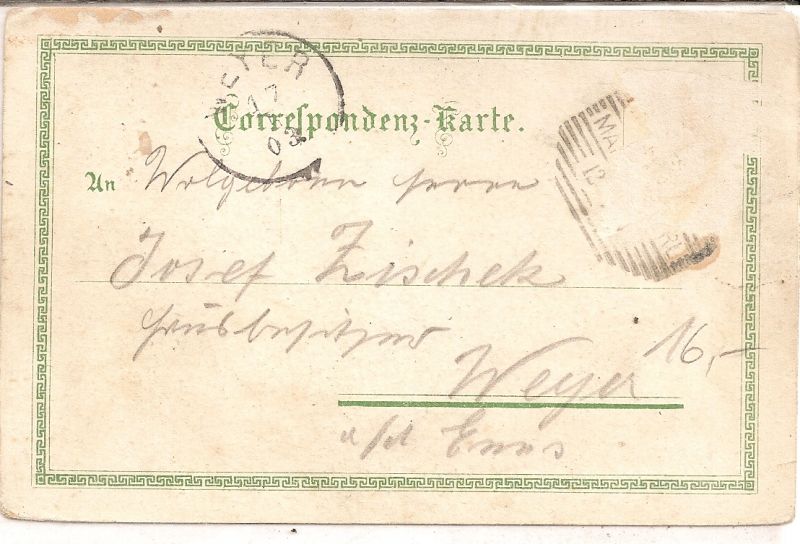 WEYER
17
03
Correspondenz-Karte.
An Wolgeboren Herrn
Josef Zischek
Hausbesitzer
Weyer 16,-
a/d Enns
MA
12